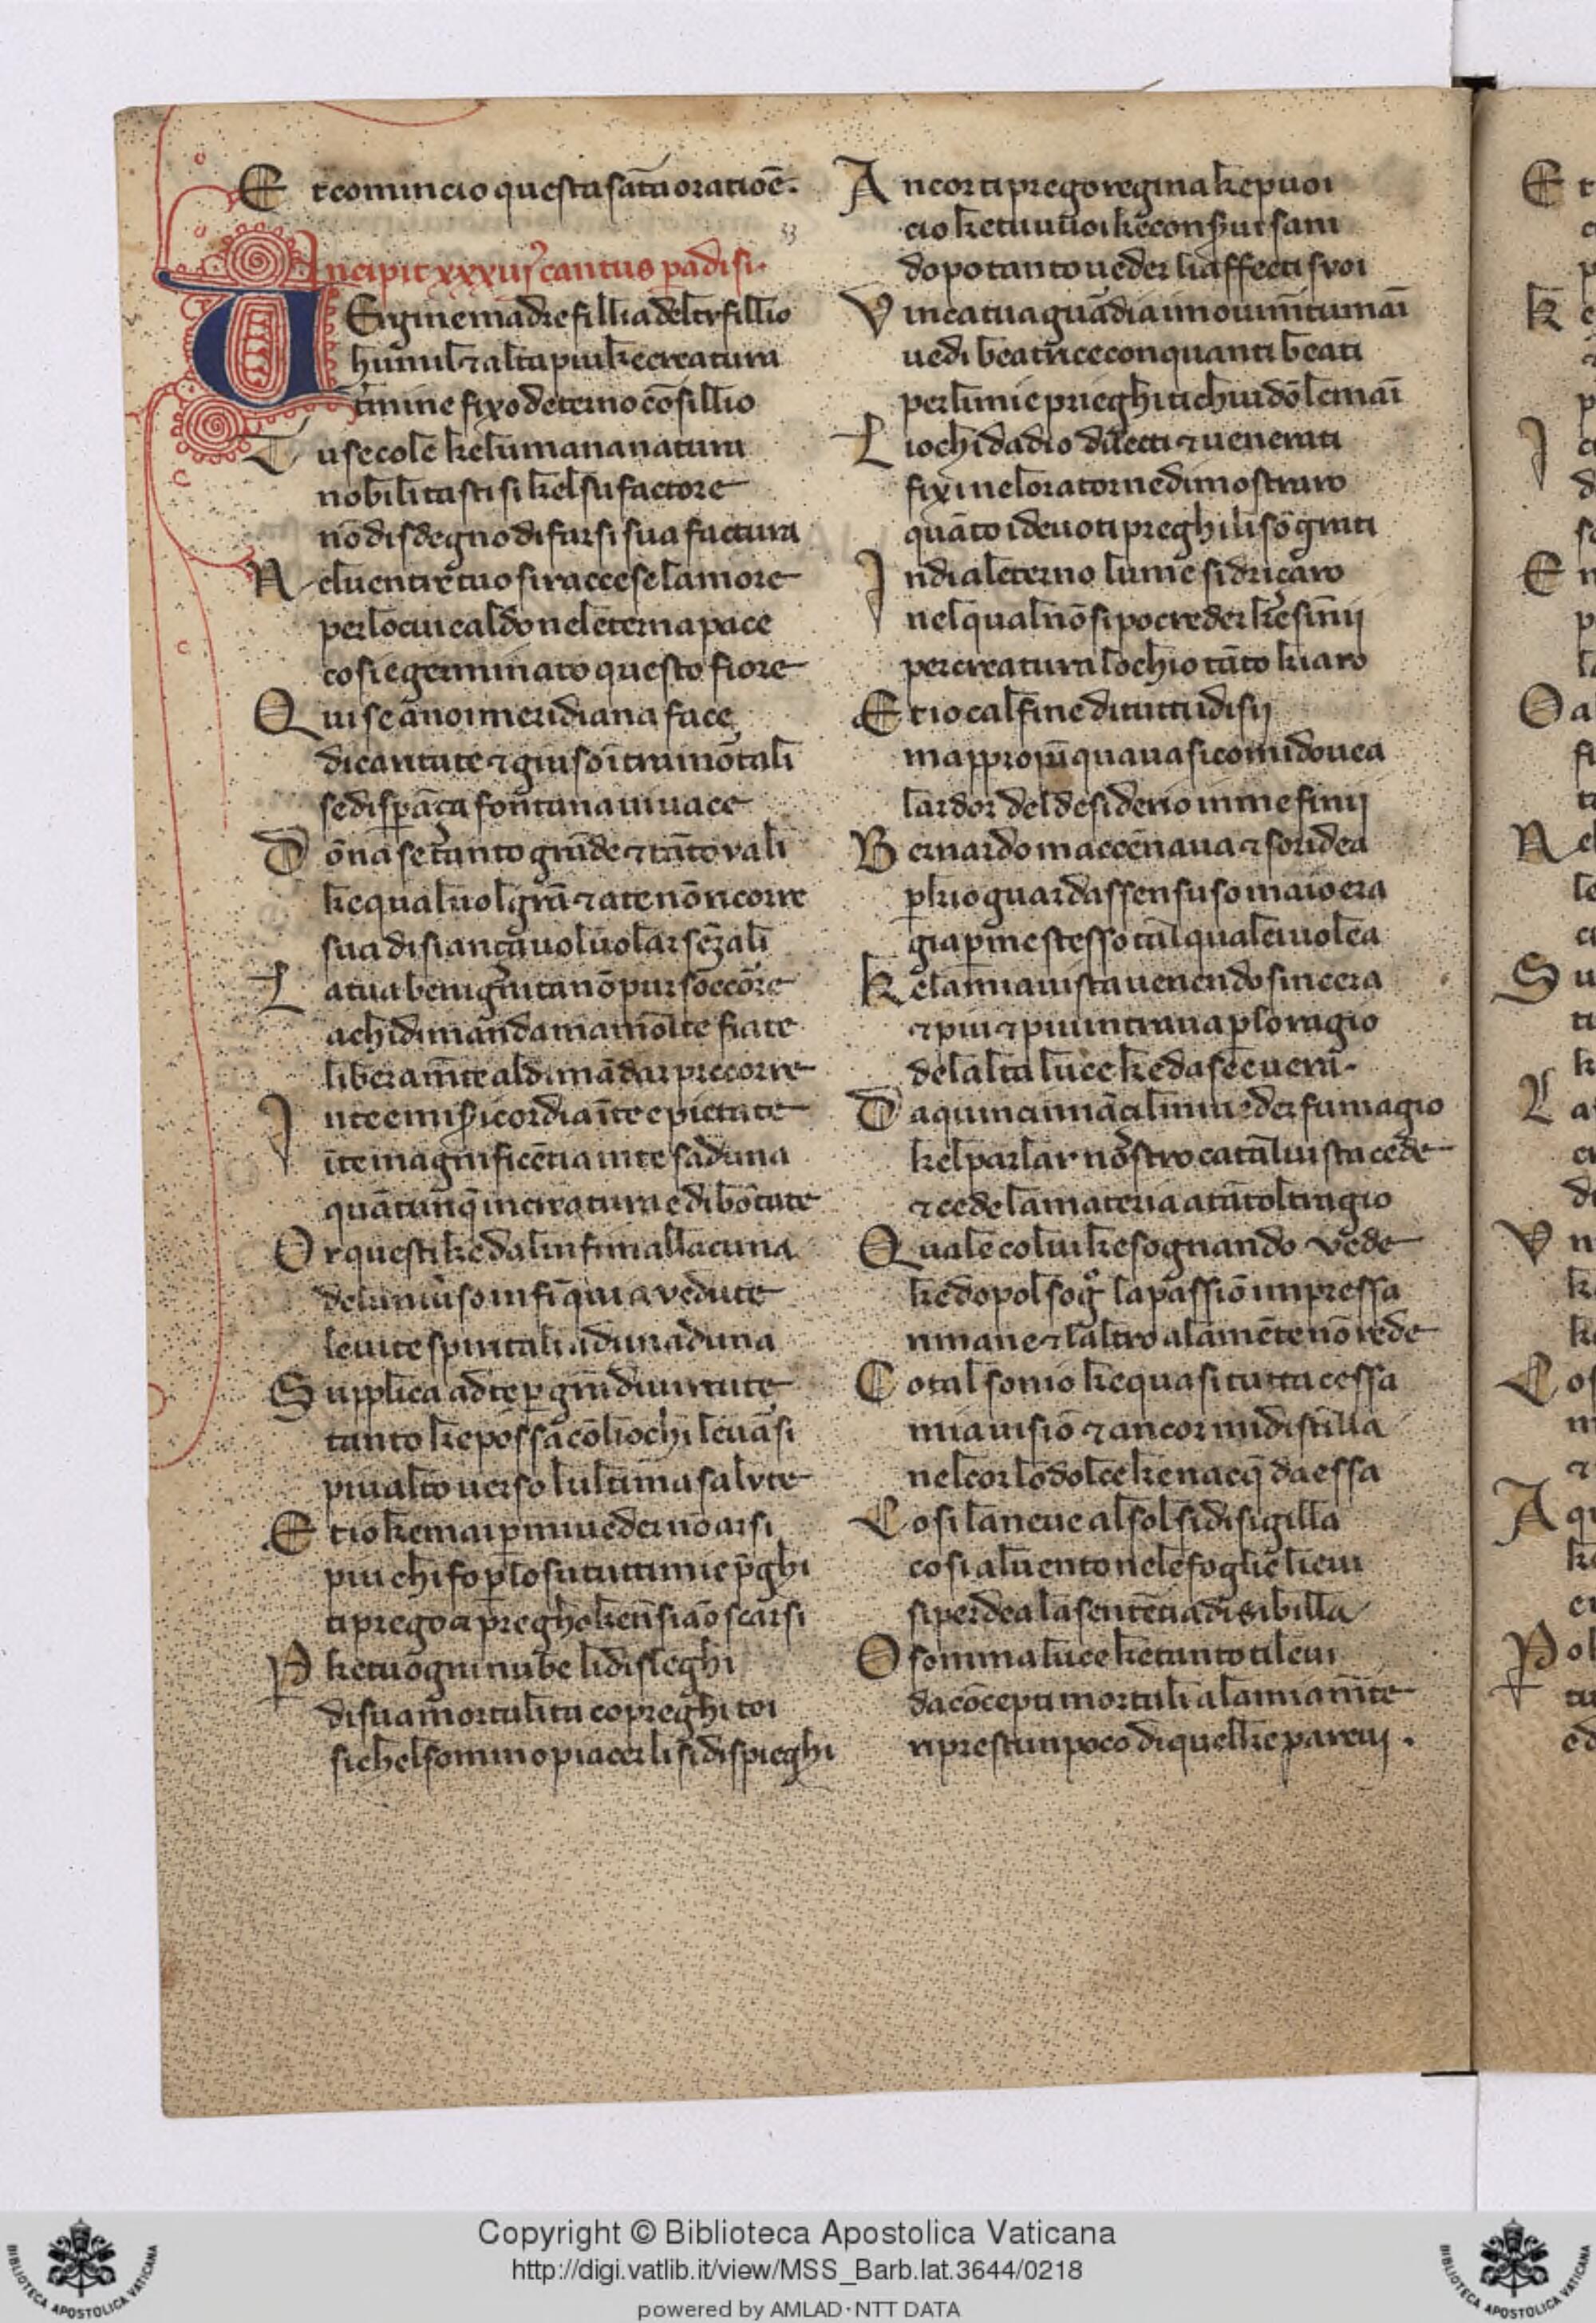 E t comincio questa sāta oratiōe.
33
Incipit xxxiij cantus paradisi.
VErgine madre fillia del to fillio
humil ⁊ alta piu ke creatura
tmine fixo deterno cōsillio
T u se cole kelumana natura
nobilitasti si kel su factore
nō disdegno di farsi sua factura
N el uentre tuo si raccese lamore
per lo cui caldo nel eterna pace
cosi e germinato questo fiore
Q ui se a noi meridiana face
di caritate ⁊ giuso ītra mōtali
se di sperāça fontana uiuace
D ōna se tanto grāde ⁊ tāto vali
ke qual uol grā ⁊ a te nō ricorre
sua disiança uol uolar seʒ ali
L a tua benignita nō pur soccōre
a chi dimanda ma molte fiate
liberamīte al dimādar precorre
I n te e misicordia īte e pietate
īte magnificētia in te saduna
quātunq̄ in creatura e di bōtate
O r questi ke dal infima lacuna
de luniuso infī qui a vedute
le uite spiritali ad una ad una
S upplica ad te p grā di uirtute
tanto ke possa cō liochi leuasi
piu alto uerso lultima salute
E t io ke mai p mi ueder nō arsi
piu chi fo p lo su tutti mie pghi
ti prego ⁊ pregho ke nsiāo scarsi
P ke tu ogni nube li disleghi
di sua mortalita co preghi toi
si chel sommo piacer li si dispieghi
A ncor ti prego regina ke puoi
cio ke tu uoi ke consui sani
dopo tanto ueder li affecti svoi
V inca tua guādia i mouimīti umāi
uedi beatrice con quanti beati
per li mie prieghi ti chiudō le mai
L i ochi da dio dilecti ⁊ uenerati
fixi nel orator ne dimostraro
quāto i deuoti preghi li sō grati
I ndi al eterno lume si driçaro
nel qual nō si po creder ke sinij
per creatura lochio tāto kiaro
E t io cal fine di tutti disij
mappropīquaua si com i douea
lardor del desiderio in me finij
B ernardo maccēnaua ⁊ soridea
p kio guardassen suso ma io era
gia p me stesso tal quale i uolea
K e la mia uista uenendo sincera
⁊ piu ⁊ piu intraua p lo ragio
de lalta luce ke da se e uera.
D a qui inançi lmi ueder fu magio
kel parlar nostro ca tal uista cede
⁊ cede la materia a tāto ltragio
Q uale colui ke sognando vede
ke dopol sogo la passiō impressa
rimane ⁊ laltro a la mēte nō rede
C otal son io ke quasi tutta cessa
mia uisiō ⁊ ancor mi distilla
nel cor lo dolce ke nacq̄ da essa
C osi la neue al sol si disigilla
cosi al uento ne le foglie lieui
si perdea la sentētia di sibilla
O somma luce ke tanto ti leui
da cōcepti mortali a la mia mīte
ripresta un poco di quel ke pareuj.
E t
K e
E n
O a
N el
S u
L a
V n
C os
A qu
P ol
Copyright © Biblioteca Apostolica Vaticana
http://digi.vatlib.it/view/MSS_Barb.lat.3644/0218
powered by AMLAD·NTT DATA
BIBLIOTECA APOSTOLICA VATICANA
BIBLIOTECA APOSTOLICA VATICANA